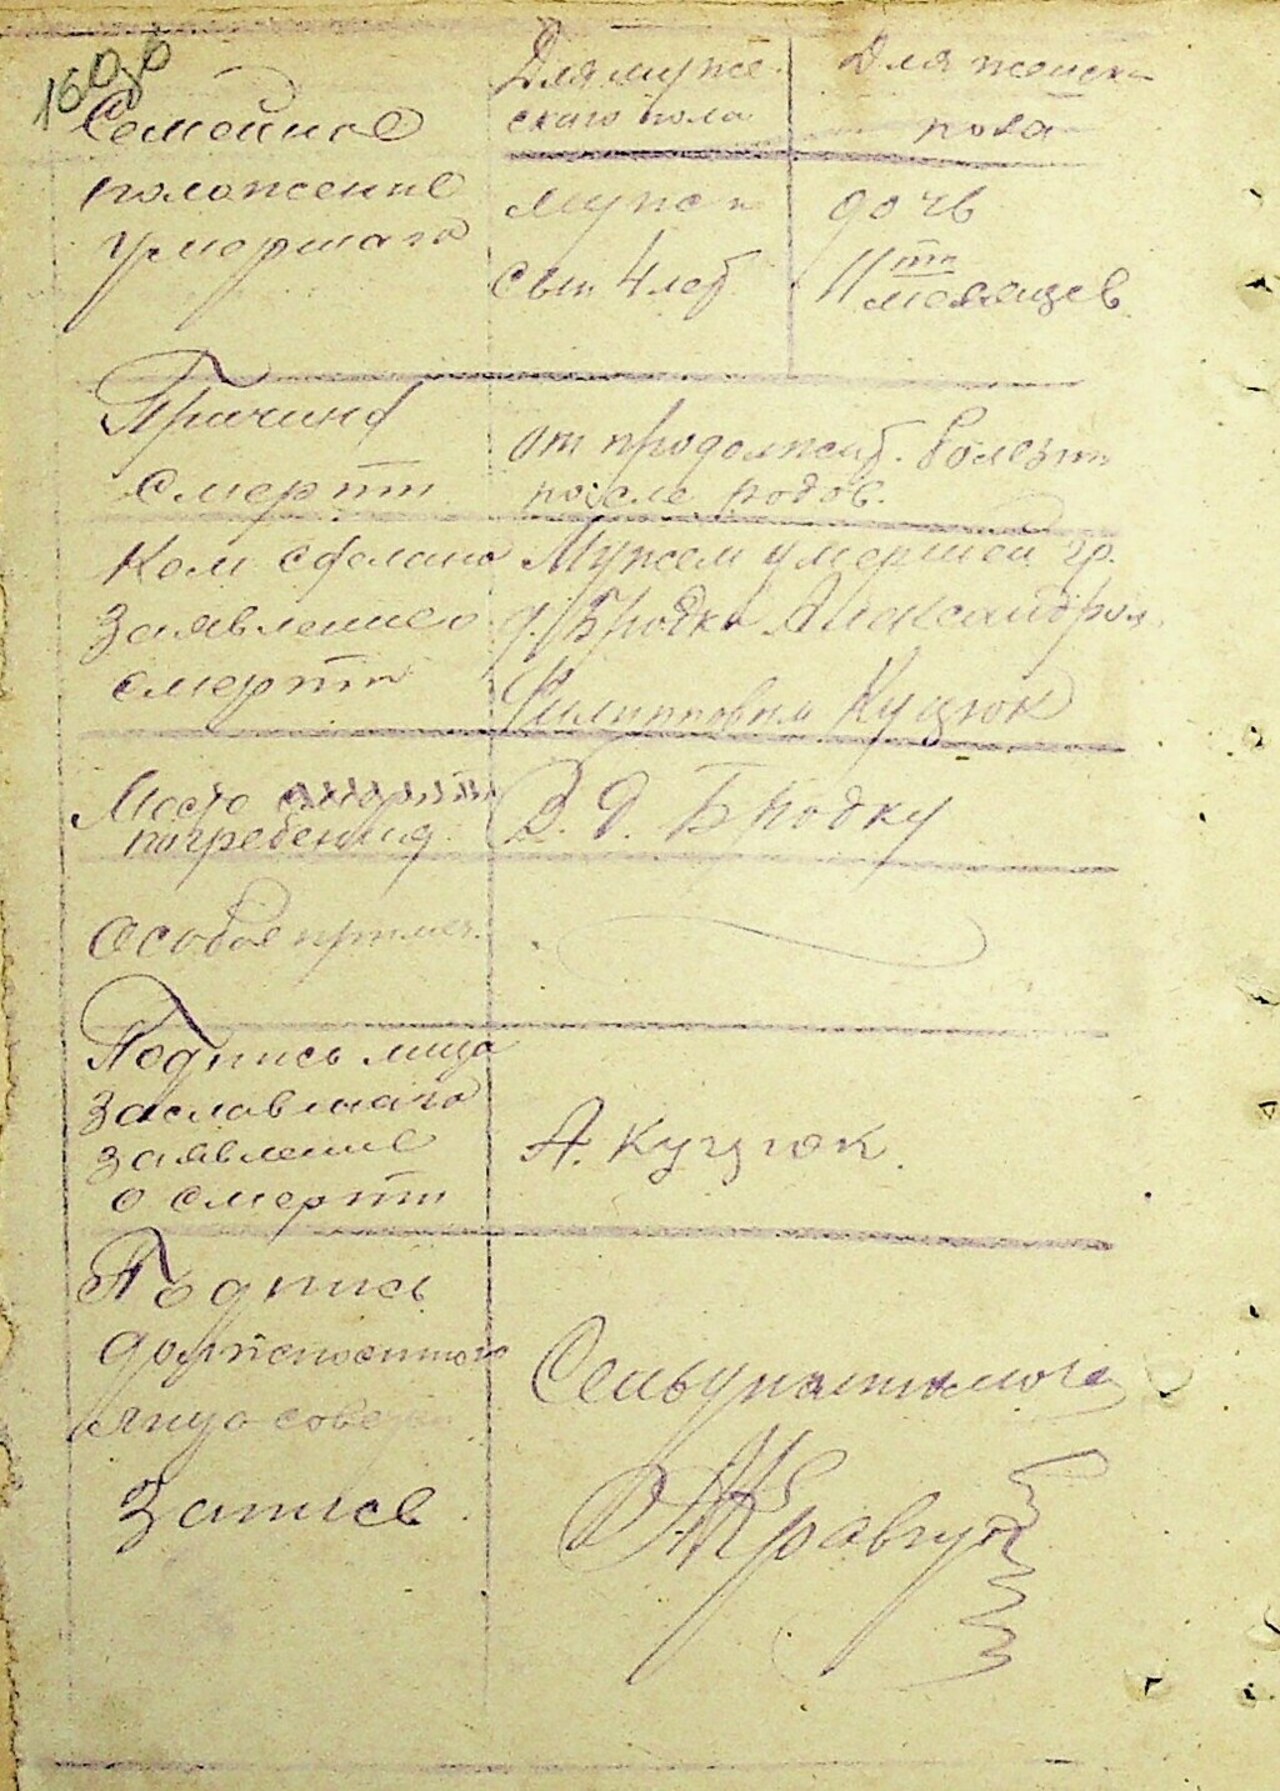 160об
Семейное
положение
умершаго
Для муже-
скаго пола
Для женск
пола
муж и
сын 4 лет
дочь
11ти
месяцев
Причина
смерти
от продолжит. болезни
после родов.
Кем сделано
заявление о
смерти
Мужем умершей гр.
д. Бродки Александром
Филипповым Куцюк
Место
погребения
В д. Бродку
Особое примеч.
Подпись лица
заявление
о смерти
А. Куцюк.
Подпись
должностного
лица
запись
Сельуполномоч
Кравчук